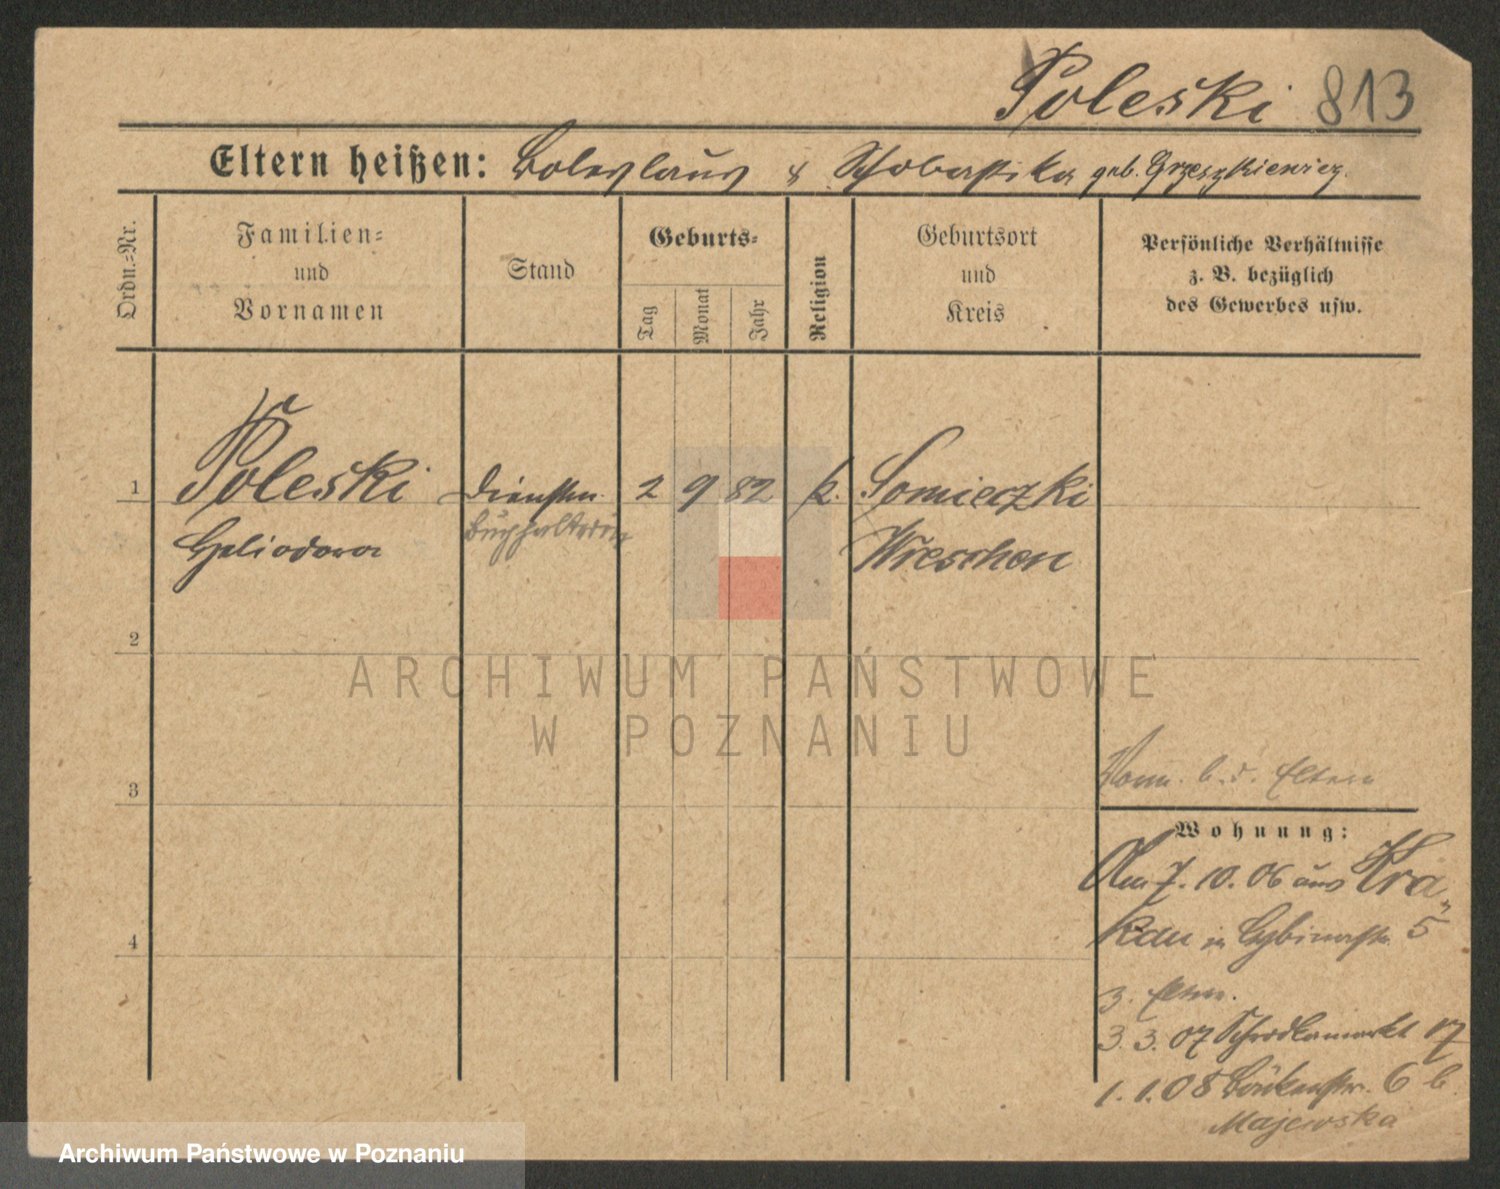 Poleski 813
Eltern heißen: Boleslaus & Scholastika geb. Grzeszkiewicz.
Ordn.=Nr.
Familien=
und
Vornamen
Stand
Geburts=
Tag
Monat
Jahr
Religion
Geburtsort
und
Kreis
Persönliche Verhältnisse
z. B. bezüglich
des Gewerbes usw.
1 Poleski 2 9 82 k.
Heliodora Buchhalterin Wreschen
2
3
b. d. Eltern
Wohnung:
Am 7. 10. 06 aus Kra=
kau in Cybinastr. 5
z. Eltern.
3. 3. 07 Schrodkamarkt 17
1. 1. 08 6 b.
Majewska
4
ARCHIWUM PAŃSTWOWE
W POZNANIU
Archiwum Państwowe w Poznaniu